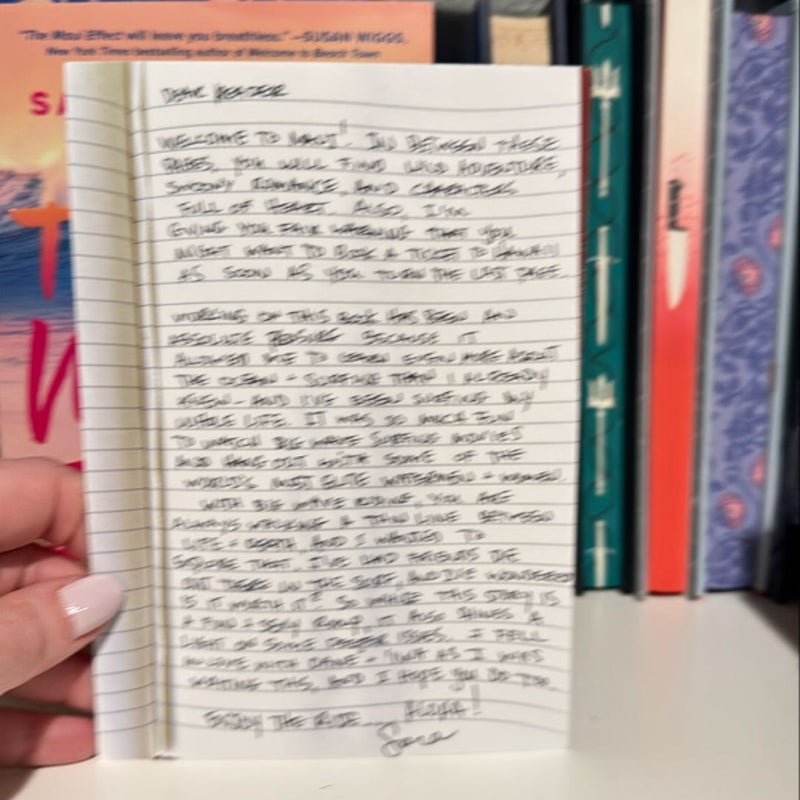 "The Maui Effect will leave you breathless." —SUSAN WIGGS,
New York Times bestselling author of Welcome to Beach Town
SA
T
DEAR READER
WELCOME TO MAUI! IN BETWEEN THESE
PAGES, YOU WILL FIND WILD ADVENTURE,
SWOONY ROMANCE, AND CHARACTERS
FULL OF HEART. ALSO, I'M
GIVING YOU FAIR WARNING THAT YOU
MIGHT WANT TO BOOK A TICKET TO HAWAII
AS SOON AS YOU TURN THE LAST PAGE.
WORKING ON THIS BOOK HAS BEEN AND
ABSOLUTE PLEASURE BECAUSE IT
ALLOWED ME TO LEARN EVEN MORE ABOUT
THE OCEAN + SURFING THAN I ALREADY
KNEW - AND I'VE BEEN SURFING MY
WHOLE LIFE. IT WAS SO MUCH FUN
TO WATCH BIG WAVE SURFING MOVIES
AND HANG OUT WITH SOME OF THE
WORLD'S MOST ELITE WATERMEN + WOMEN.
WITH BIG WAVE RIDING, YOU ARE
ALWAYS WALKING A THIN LINE BETWEEN
LIFE + DEATH, AND I WANTED TO
EXPLORE THAT. I'VE HAD FRIENDS DIE
OUT THERE IN THE SURF, AND I'VE WONDERED
IS IT WORTH IT? SO WHILE THIS STORY IS
A FUN + SEXY ROMP, IT ALSO SHINES A
LIGHT ON SOME DEEPER ISSUES. I FELL
IN LOVE WITH DANE - AS I WAS
WRITING THIS, AND I HOPE YOU DO TOO.
ENJOY THE RIDE... ALOHA!
Sara